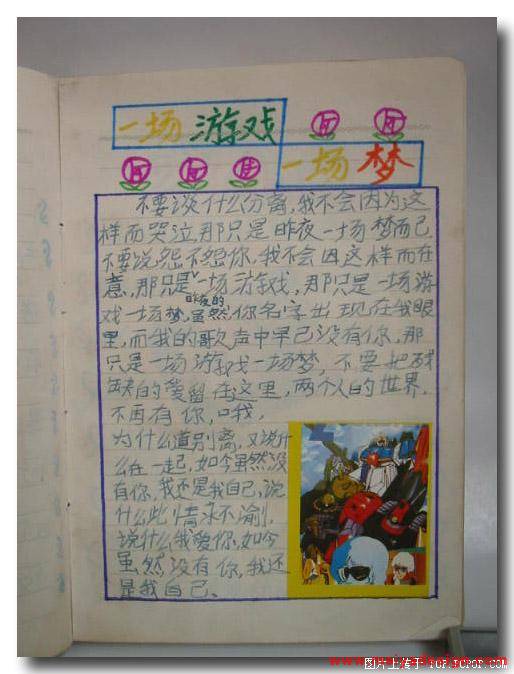 一场游戏
一场梦
不要谈什么分离,我不会因为这
样而哭泣那只是昨夜一场梦而已
不要说怨不怨你,我不会因这样而在
意,那只是一场游戏,那只是一场游
戏一场梦,虽然你名字出现在我眼
昨夜的
里,而我的歌声中早已没有你,那
只是一场游戏一场梦,不要把残
缺的爱留在这里,两个人的世界,
不再有你,
为什么道别离,又说什
么在一起,如今虽然没
有你,我还是我自己,说
什么此情永不渝,
说什么我爱你,如今
虽然没有你,我还
是我自己.
图片上传于